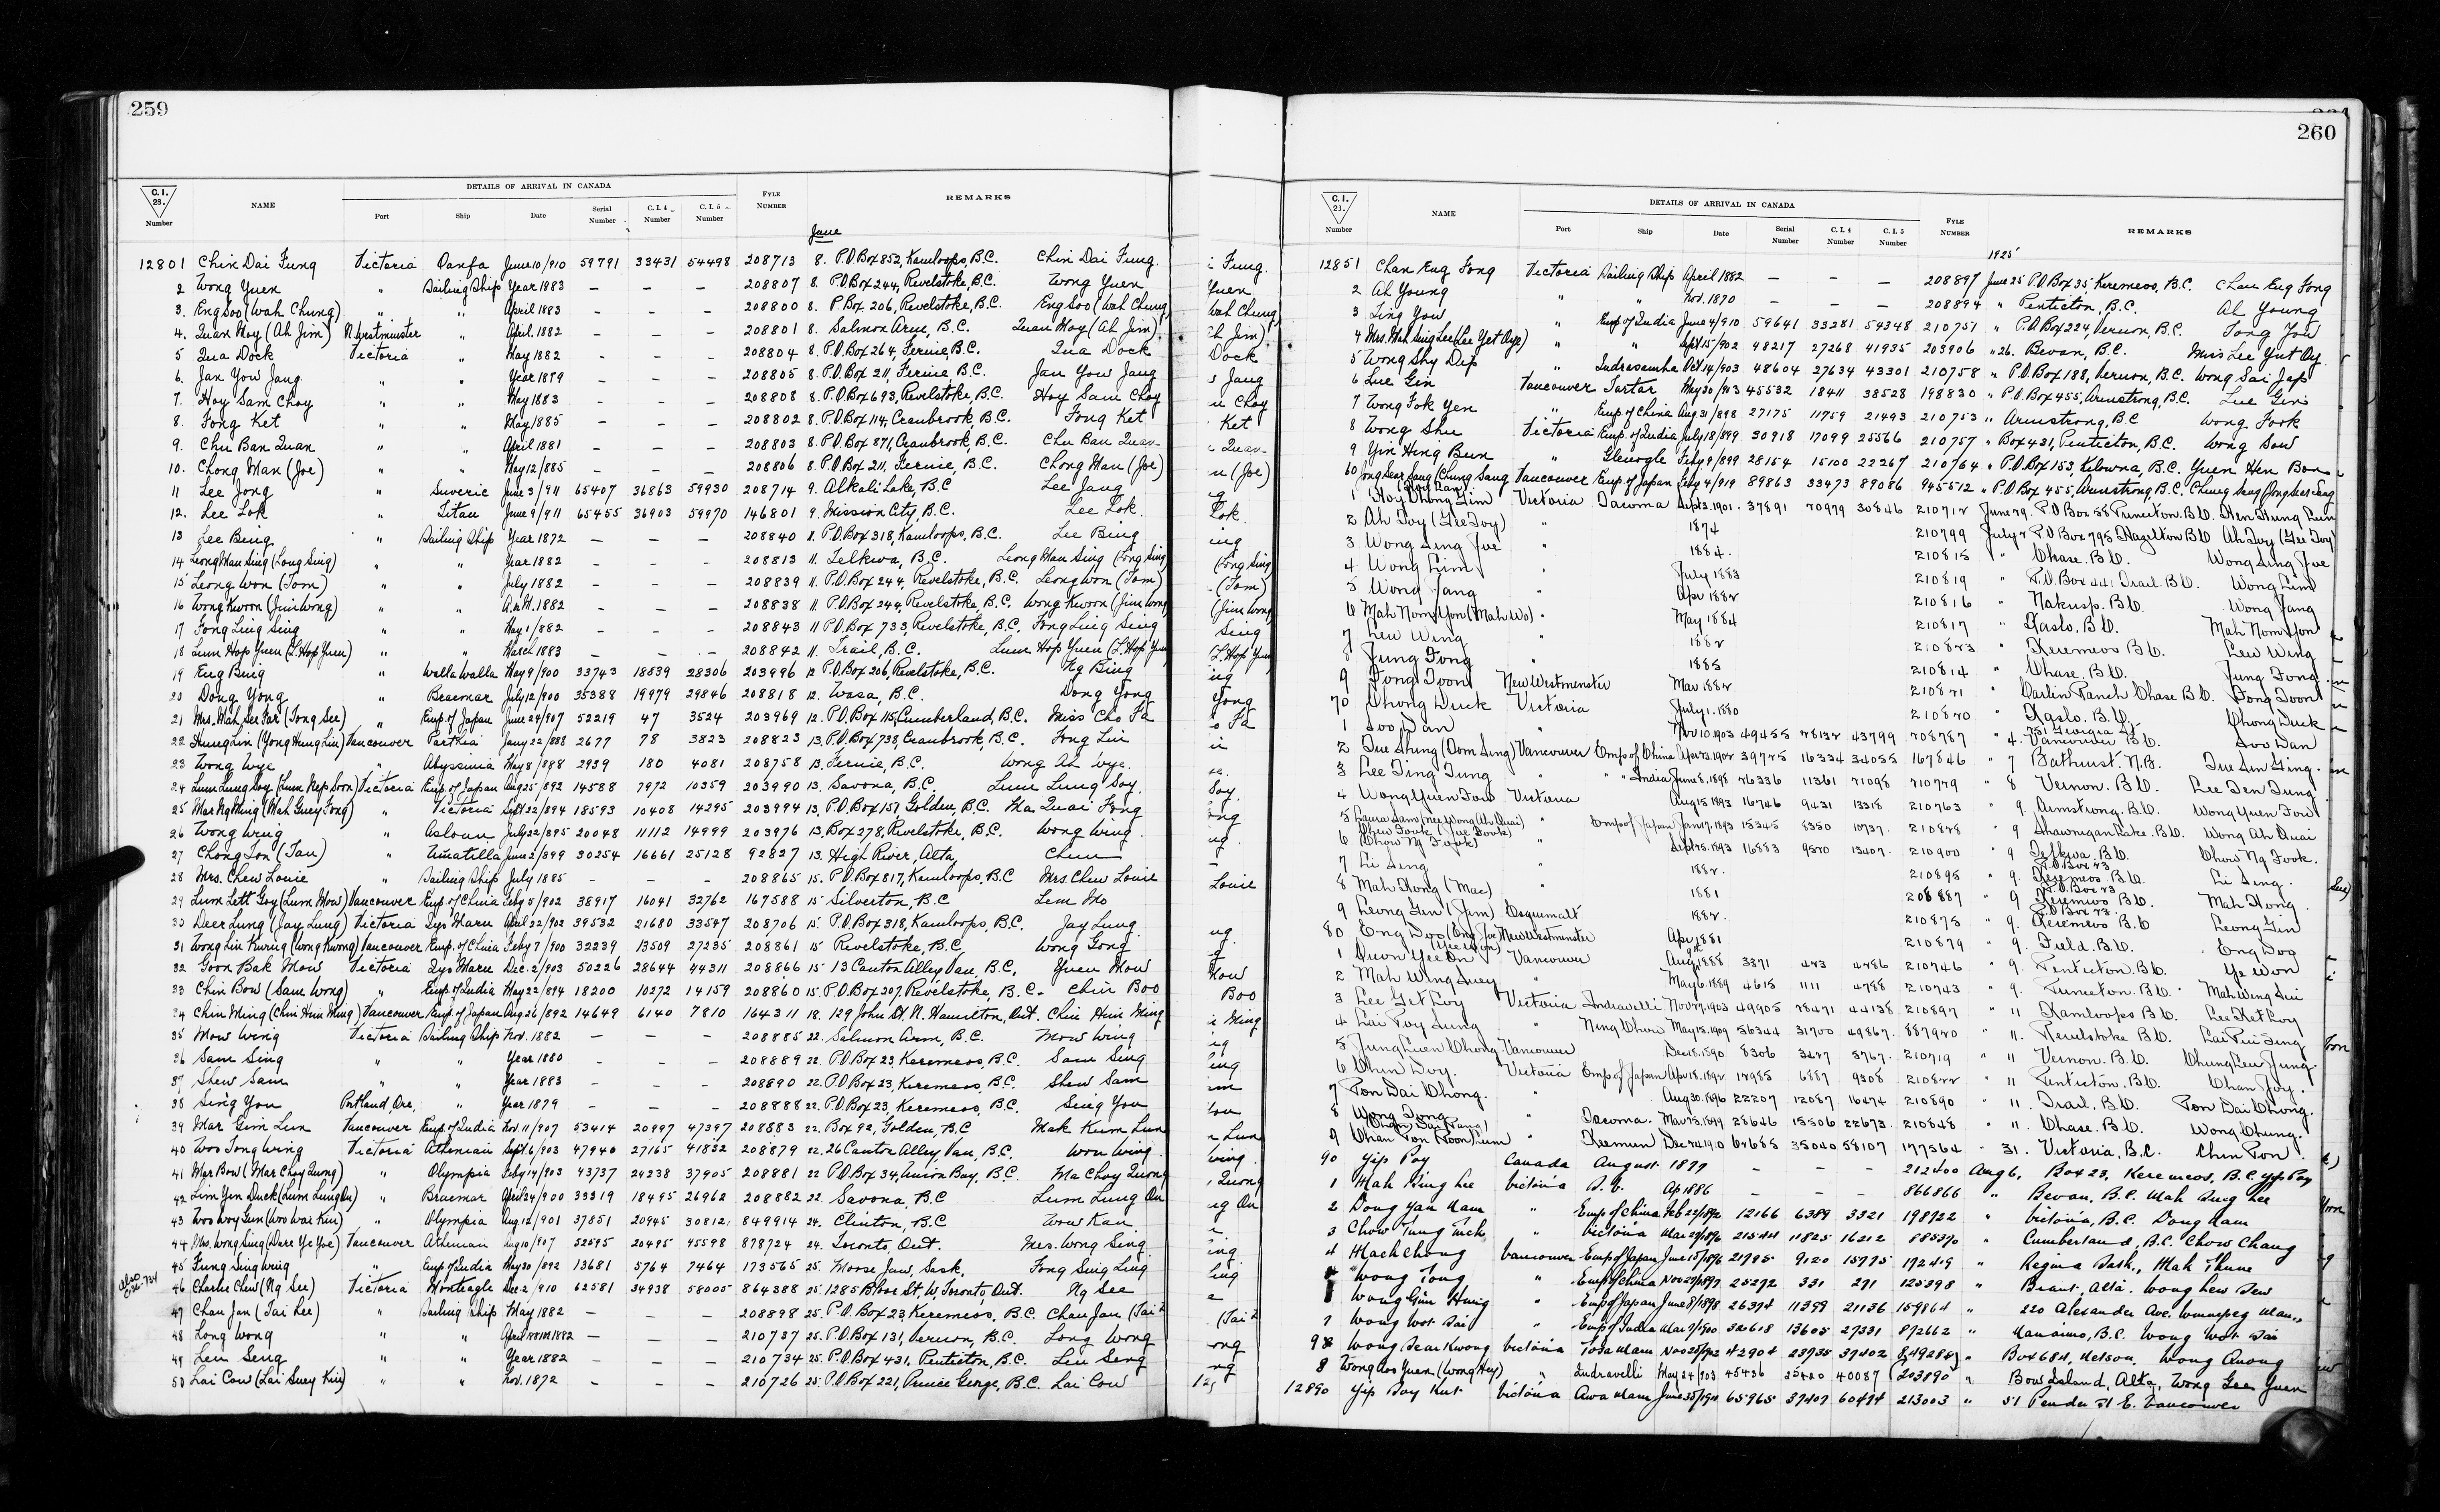 259
C.I. 28. Number NAME DETAILS OF ARRIVAL IN CANADA Port Ship Date Serial Number C.I.4 Number C.I.5 Number FYLE NUMBER REMARKS
June
12801 Chin Dai Fung Victoria Oanfa June 10/910 59791 33431 54498 208713 8. P.O Box 852, Kamloops, B.C. Chin Dai Fung
2 Wong Yuen " Sailing Ship Year 1883 – – – 208807 8. P.O Box 244, Revelstoke, B.C. Wong Yuen
3. Eng Soo (Wah Chung) " " April 1883 – – – 208800 8. P. Box 206, Revelstoke, B.C. Eng Soo (Wah Chung
4. Quan Hoy (Ah Jim) N. Westminster " April. 1882 – – – 208801 8. Salmon Arm, B.C. Quan Hoy (Ah Jim)
5 Qua Dock Victoria " May 1882 – – – 208804 8. P.O. Box 264, Fernie, B.C. Qua Dock
6. Jan Yow Jang " " Year 1879 – – – 208805 8. P.O. Box 211, Fernie B.C. Jan Yow Jang
7. Hoy Sam Choy " " May 1883 – – – 208808 8. P.O. Box 693, Revelstoke, B.C. Hoy Sam Choy
8. Fong Ket " " May 1885 – – – 208802 8. P.O. Box 114, Cranbrook, B.C. Fong Ket
9. Chu Ban Quan " " April 1881 – – – 208803 8. P.O. Box 871, Cranbrook, B.C. Chu Ban Quan
10. Chong Man (Joe) " " May 12/885 – – – 208806 8. P.O. Box 211, Fernie, B.C. Chong Man (Joe)
11 Lee Jong " Suveric June 3/911 65407 36863 59930 208714 9. Alkali Lake, B.C Lee Jang
12. Lee Lok " Titan June 9/911 65455 36903 59970 146801 9. Mission City, B.C. Lee Lok.
13 Lee Bing " Sailing Ship Year 1872 – – – 208840 11. P.O. Box 318, Kamloops, B.C. Lee Bing
14 Leong Man Sing (Long Sing) " " Year 1882 – – – 208813 11. Telkwa, B.C. Leong Man Sing (Long Sing
15 Leong Won (Tom) " " July 1882 – – – 208839 11. P.O. Box 244, Revelstoke, B.C. Leong Won (Tom)
16 Wong Kwoon (Jim Wong) " " 1882 – – – 208838 11. P.O. Box 244, Revelstoke, B.C. Wong Kwoon (Jim Wong
17 Fong Ling Sing " " May 1/882 – – – 208843 11 P.O. Box 733, Revelstoke, B.C. Fong Ling Sing
18 Lum Hop Yuen (L. Hop Yuen) " " March 1883 – – – 208842 11. Trail, B.C. Lum Hop Yuen (L. Hop Yuen
19 Eng Bing " Walla Walla May 9/900 33743 18539 28306 203996 12 P.O. Box 206, Revelstoke, B.C. Ng Bing
20 Dong Yong " Braemar July 12/900 35388 19979 29846 208818 12. Wasa, B.C. Dong Yong
21 Mrs. Mah See Far (Tong See) " Emp. of Japan June 24/907 52219 47 3524 203969 12. P.O. Box 115, Cumberland, B.C. Miss Cho Fa
22 Hung Lin (Yong Hung Lin) Vancouver Parthia Jany 22/888 2677 78 3823 208823 13. P.O. Box 738, Cranbrook, B.C. Fong Lin
23 Wong Wye " Abyssinia May 8/888 2939 180 4081 208758 13. Fernie, B.C. Wong Ah Wye.
24 Lum Lung Soy (Lum Nep Soon) Victoria Emp. of Japan Aug 25/892 14588 7972 10359 203990 13. Savona, B.C. Lum Lung Soy.
25 Mar Ng Ming (Mah Guey Fong) " Victoria Sept. 22/894 18593 10408 14295 203994 13. P.O. Box 157, Golden, B.C. Ma Quai Fong
26 Wong Wing " Asloun July 22/895 20048 11112 14999 203976 13. Box 278, Revelstoke, B.C. Wong Wing.
27 Chong Ton (Tan) " Umatilla June 2/899 30254 16661 25128 92827 13. High River, Alta. Chun
28 Mrs. Chew Louie " Sailing Ship July 1885 – – – 208865 15. P.O. Box 817, Kamloops, B.C Mrs. Chew Louie
29 Lum Lett Goy (Lum Mow) Vancouver Emp. of China Feby 5/902 38917 16041 32762 167588 15 Silverton, B.C Lem Mo
30 Deer Lung (Jay Lung) Victoria Oyo Maru April 22/902 39532 21680 33547 208706 15 P.O. Box 318, Kamloops, B.C. Jay Lung.
31 Wong Lin Kwing (Wong Kwong) Vancouver Emp. of China Feby 7/900 32239 13509 27235 208861 15 Revelstoke, B.C Wong Gong
32 Goon Bak Mow Victoria Oyo Maru Dec. 2/903 50226 28644 44311 208866 15 13 Canton Alley Van, B.C. Yuen Mow
33 Chin Bow (Sam Wong) " Emp. of India May 22/894 18200 10272 14159 208860 15 P.O. Box 207, Revelstoke, B.C. Chin Boo
34 Chin Ming (Chin Hin Ming) Vancouver Emp. of Japan Aug. 26/892 14649 6140 7810 164311 18. 129 John St. N. Hamilton, Ont. Chin Hin Ming
35 Mow Wing Victoria Sailing Ship Nov. 1882 – – – 208885 22. Salmon Arm, B.C. Mow Wing
36 Sam Sing " " Year 1880 – – – 208889 22. P.O. Box 23, Keremeos, B.C. Sam Sing
37 Shew Sam " " Year 1883 – – – 208890 22. P.O. Box 23, Keremeos, B.C. Shew Sam
38 Sing You Portland, Ore, " Year 1879 – – – 208888 22. P.O. Box 23, Keremeos, B.C. Sing You
39 Mar Gim Lun Vancouver Emp. of India Nov. 11/907 53414 20997 47397 208883 22. Box 92, Golden, B.C Mak Kum Lun
40 Woo Tong Wing Victoria Athenian Sept. 6/903 47940 27165 41832 208879 22. 26 Canton Alley Van, B.C. Won Wing
41 Mar Bow (Mar Choy Quong) " Olympia Feby 14/903 43737 24238 37905 208881 22 P.O. Box 34, Union Bay, B.C. Ma Choy Quong
42 Lim Yin Duck (Lum Lung On) " Braemar April 24/900 33319 18495 26962 208882 22. Savona, B.C Lum Lung On
43 Woo Woy Gun (Woo Wai Kin) " Olympia Aug. 12/901 37851 20945 30812 849914 24. Clinton, B.C Wow Kan
44 Mrs. Wong Sing (Dare Ye Yoe) Vancouver Athenian Aug 10/907 52595 20495 45598 878724 24. Toronto, Ont. Mrs. Wong Sing
45 Fung Sing Wing " Emp of India May 30/892 13681 5764 7464 173565 25. Moose Jaw, Sask. Fong Sing Ling
46 Charlie Chew (Ng See) Victoria Monteagle Dec. 2/910 62581 34938 58005 864388 25 1285 Bloor St. W, Toronto, Ont. Ng See
47 Chan Jan (Tai Lee) " Sailing Ship May 1882 – – – 208898 25. P.O. Box 23, Keremeos, B.C. Chan Jan (Tai
48 Long Wong " " April 1882 – – – 210737 25. P.O. Box 131, Vernon, B.C. Long Wong
49 Len Seng " " Year 1882 – – – 210734 25. P.O. Box 431, Penticton, B.C. Len Seng
50 Lai Cow (Lai Suey Kin) " " Nov. 1872 – – – 210726 25. P.O. Box 221, Prince George, B.C. Lai Cow
260
C.I. 23. Number NAME DETAILS OF ARRIVAL IN CANADA Port Ship Date Serial Number C.I.4 Number C.I.5 Number FYLE NUMBER REMARKS
1925
12851 Chan Eug Fong Victoria Sailing Ship April 1882 – – – 208897 June 25 P.O. Box 35, Keremeos, B.C. Chan Eug Fong
2 Ah Young " " Nov. 1870 – – – 208894 " Penticton, B.C. Ah Young
3 Ling You " Emp of India June 4/910 59641 33281 54348 210751 " P.O. Box 224, Vernon, B.C. Tong You
4 Mrs. Mah Sing Lee (Lee Yet Oye) " " Sept 15/902 48217 27268 41935 203906 " 26. Bevan, B.C. Miss Lee Yut Oy
5 Wong Shy Dep " Indrasamha Oct. 14/903 48604 27634 43301 210758 " P.O. Box 188, Vernon, B.C. Wong Sai Jap
6 Lue Gin Vancouver Tartar May 30/903 45532 18411 38528 198830 " P.O. Box 455, Armstrong, B.C. Lue Gin
7 Wong Fok Yen " Emp. of China Aug 31/898 27175 11759 21493 210753 " Armstrong, B.C Wong Fook
8 Wong Shu Victoria Emp. of India July 18/899 30918 17099 25566 210757 " Box 431, Penticton, B.C. Wong Sow
9 Yin Hing Bun " Glenogle Feby 9/899 28154 15100 22267 210764 " P.O. Box 153, Kelowna, B.C. Yuen Hen Bon
60 Jong Sear Sang (Chung Sang Vancouver Emp. of Japan Feby 4/919 89863 33473 89086 945512 " P.O. Box 455, Armstrong, B.C. Chung Sang (Jong Sear Sang
1 Hoy Chong Gim Victoria Tacoma Sept 3. 1901. 37891 20979 30846 210712 June 29. P.O Box 58 Princeton. B.C. Hen Hung Lum
2 Ah Toy (Gee Toy) " 1874 210799 July 2 P.O Box 795 Hazelton B.C. Ah Toy (Gee Toy
3 Wong Sing Jue " 1884. 210815 " Chase. B.C. Wong Sing Jue
4 Wong Lim " July 1883 210819 " P.O. Box 441 Trail. B.C. Wong Lim
5 Wong Jang " Apr 1882 210816 " Nakusp. B.C. Wong Jang
6 Mah Nom Yon (Mah Wo) " May 1884 210817 " Kaslo. B.C. Mah Nom Yon
7 Lew Wing " 1882 210823 " Keremeos B.C. Lew Wing
8 Jung Fong " 1885 210814 " Chase. B.C. Jung Fong
9 Fong Toon New Westminster Mar 1882 210821 " Ranch Chase B.C. Fong Toon
70 Chong Duck Victoria July 1. 1880 210820 " Kaslo. B.C. Chong Duck
1 Soo Dan " Nov 10. 1903 49455 28132 43799 208787 " 4. 751 Georgia St. Vancouver B.C. Soo Dan
2 Jue Shung (Dom Sing) Vancouver Emp of China Apr 23. 1902 39725 16334 34055 167846 " 7 Bathurst. N.B. Jue Sun Ging.
3 Lee Ting Tung " " India June 8. 1898 26336 11361 21098 210779 " 8 Vernon. B.C. Lee Den Dung
4 Wong Yuen Fow Victoria Aug 15. 1893 16746 9431 13318 210763 " 9. Armstrong. B.C. Wong Yuen Fow
5 Laura Sam (nee Wong Ah Quai) " Emp of Japan Jan 17. 1893 15345 8350 10737. 210828 " 9 Shawnigan Lake. B.C. Wong Ah Quai
6 Chow Fook (Jue Fook) (Chow Ng Fook) " Sept 25. 1893 16883 9520 13407. 210900 " 9 Telkwa. B.C. Chow Ng Fook.
7 Li Seng " 1882. 210895 " 9. P.O Box 23 Keremeos B.C. Li Seng.
8 Mah Hong (Mac) " 1881 208887 " 9 P.O Box 23 Keremeos B.C. Mah Hong
9 Leong Gin (Jim) Esquimalt 1882. 210875 " 9. P.O Box 23 Keremeos B.C Leong Gin
80 Eng Doo (Eng Joe) New Westminster Apr 1881 210879 " 9. Field. B.C. Eng Dog
1 Quon Yee On (Yee Won) Vancouver Aug 1888 3371 423 4286 210746 " 9. Penticton. B.C. Ye Won
2 Mah Wing Suey " May 6. 1889 4615 1111 4788 210743 " 9. Princeton. B.C. Mah Wing Sui
3 Lee Get Loy Victoria Indravelli Nov 27. 1903 49905 28471 44138 210897 " 11 Kamloops B.C. Lee Ket Loy
4 Lai Poy Sung " Ning Chow May 15. 1909 56344 31700 49867. 887920 " 11. Revelstoke B.C. Lai Pui Sing
5 Jung Luen Chong Vancouver Dec 18. 1890 8306 3427 5767. 210719 " 11 Vernon. B.C. Chung Leu Jung.
6 Chin Doy. Victoria Emp of Japan Apr 18. 1892 12985 6887 9308 210822 " 11 Penticton. B.C. Chan Joy.
7 Pon Dai Chong. " Aug 30. 1896 22207 12087 16474 210890 " 11. Trail. B.C. Pon Dai Chong.
8 Wong Jong " Tacoma. Mar 25. 1899 28646 15506 22673. 210848 " 11. Chase. B.C. Wong Chung.
9 Chan Pon (Toon) " Keemun Dec 24. 1910 62685 35040 58107 177564 " 31. Victoria, B.C. Chin Pon
90 Yip Poy Canada August. 1877 – – – 212400 Aug 6. Box 23, Keremeos, B.C. Yip Poy
1 Mah Sing Lee Victoria S.V. Ap 1886 – – – 866866 " Bevan, B.C. Mah Sing Lee
2 Dong Yan Nam " Emp of China Feb 22/1892 12166 6389 3321 198922 " Victoria, B.C. Dong Nam
3 Chow Tung " Victoria Mar 29/1896 21544 11825 16212 885370 " Cumberland, B.C. Chow Chang
4 Mach Chong Vancouver Emp of Japan June 15/1896 21795 9120 15795 192419 " Regina Sask., Mah Thune
Wong Tong " Emp of China Nov 29/1897 25292 331 291 125398 " Alta. Wong Lew Sew
Wong Gun Hung " Emp of Japan June 8/1898 26374 11399 21136 159864 " 220 Alexander Ave. Winnipeg Man.
7 Wong Wot Sai " Emp of India Mar 7/1900 32618 13605 27331 872662 " Nanaimo, B.C. Wong Wot Sai
98 Wong Sear Kwong Victoria Tosa Maru Nov 25/902 42904 23735 37402 849284 " Box 684, Nelson, Wong Quong
8 Wong Loo Yuen (Wong Hoy) " Indravelli May 24/903 45436 25420 40087 203890 " Bow Island, Alta, Wong Gee Yuen
12890 Yip Say Kut Victoria Awa Maru June 25/1911 65965 37407 60474 213003 " 51 Pender St E. Vancouver